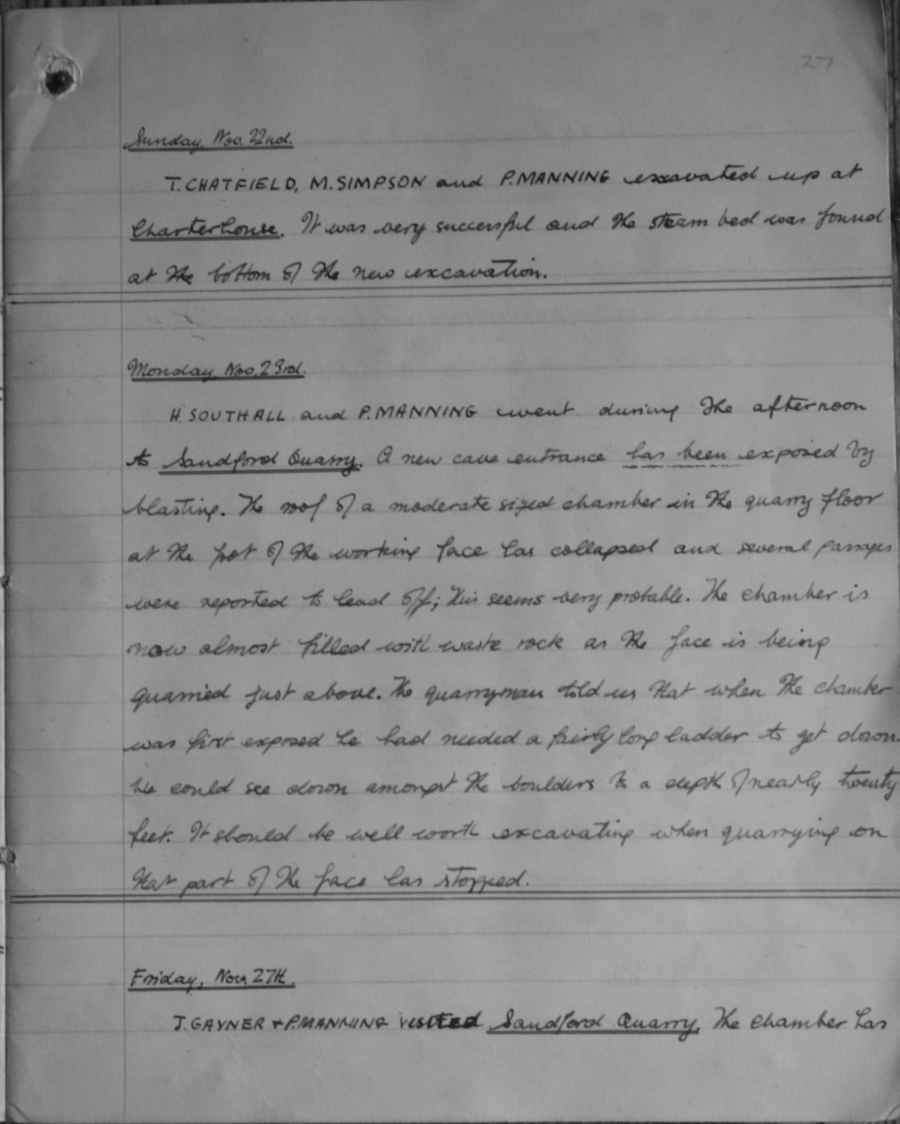 27
Sunday, Nov. 22nd.
T. CHATFIELD, M. SIMPSON and P. MANNING excavated up at
Charterhouse. It was very successful and the steam bed was found
at the bottom of the new excavation.
Monday, Nov. 23rd.
H. SOUTHALL and P. MANNING went during the afternoon
to Sandford Quarry. A new cave entrance has been exposed by
blasting. The roof of a moderate sized chamber in the quarry floor
at the foot of the working face has collapsed and several passages
were reported to lead off; this seems very probable. The chamber is
now almost filled with waste rock as the face is being
quarried just above. The quarryman told us that when the chamber
was first exposed he had needed a fairly long ladder to get down.
We could see down amongst the boulders to a depth of nearly twenty
feet. It should be well worth excavating when quarrying on
that part of the face has stopped.
Friday, Nov. 27th.
J. GAYNER + P. MANNING visited Sandford Quarry. The chamber has